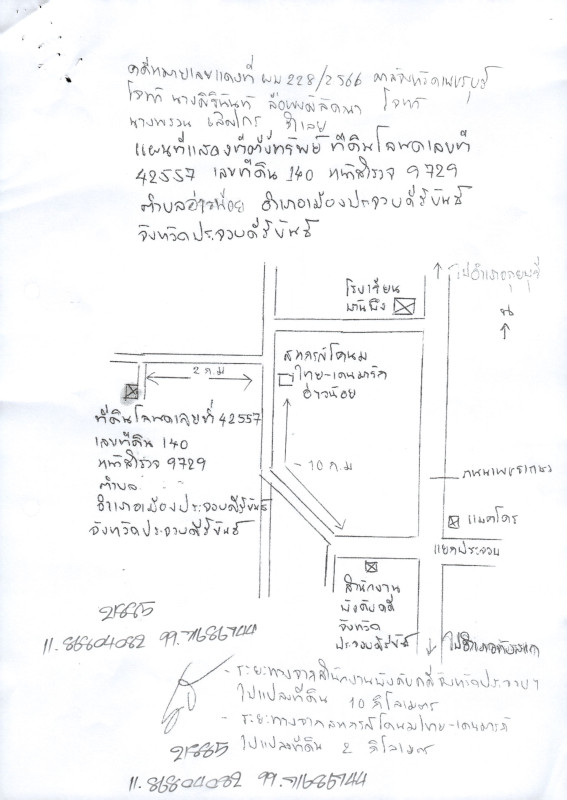 คดีหมายเลขแดงที่ ผบ 228/2566 ศาลจังหวัดเพชรบุรี
โจทก์ นางสิรินันท์ โจทก์
นางพรวน จำเลย
แผนที่แสดงที่ตั้งทรัพย์ ที่ดินโฉนดเลขที่
42557 เลขที่ดิน 140 หน้าสำรวจ 9729
ตำบลอ่าวน้อย อำเภอเมืองประจวบคีรีขันธ์
จังหวัดประจวบคีรีขันธ์
ไปอำเภอกุยบุรี
โรงเรียน
น
สหกรณ์โคนม
ไทย-เดนมาร์ค
อ่าวน้อย
2 ก.ม
ที่ดินโฉนดเลขที่ 42557
เลขที่ดิน 140
หน้าสำรวจ 9729
ตำบล
อำเภอเมืองประจวบคีรีขันธ์
จังหวัดประจวบคีรีขันธ์
10 ก.ม
ถนนเพชรเกษม
แมคโคร
แยกประจวบ
สำนักงาน
บังคับคดี
จังหวัด
ประจวบคีรีขันธ์
ไปอำเภอทับสะแก
- ระยะทางจากสำนักงานบังคับคดีจังหวัดประจวบฯ
ไปแปลงที่ดิน 10 กิโลเมตร
- ระยะทางจากสหกรณ์โคนมไทย-เดนมาร์ค
ไปแปลงที่ดิน 2 กิโลเมตร